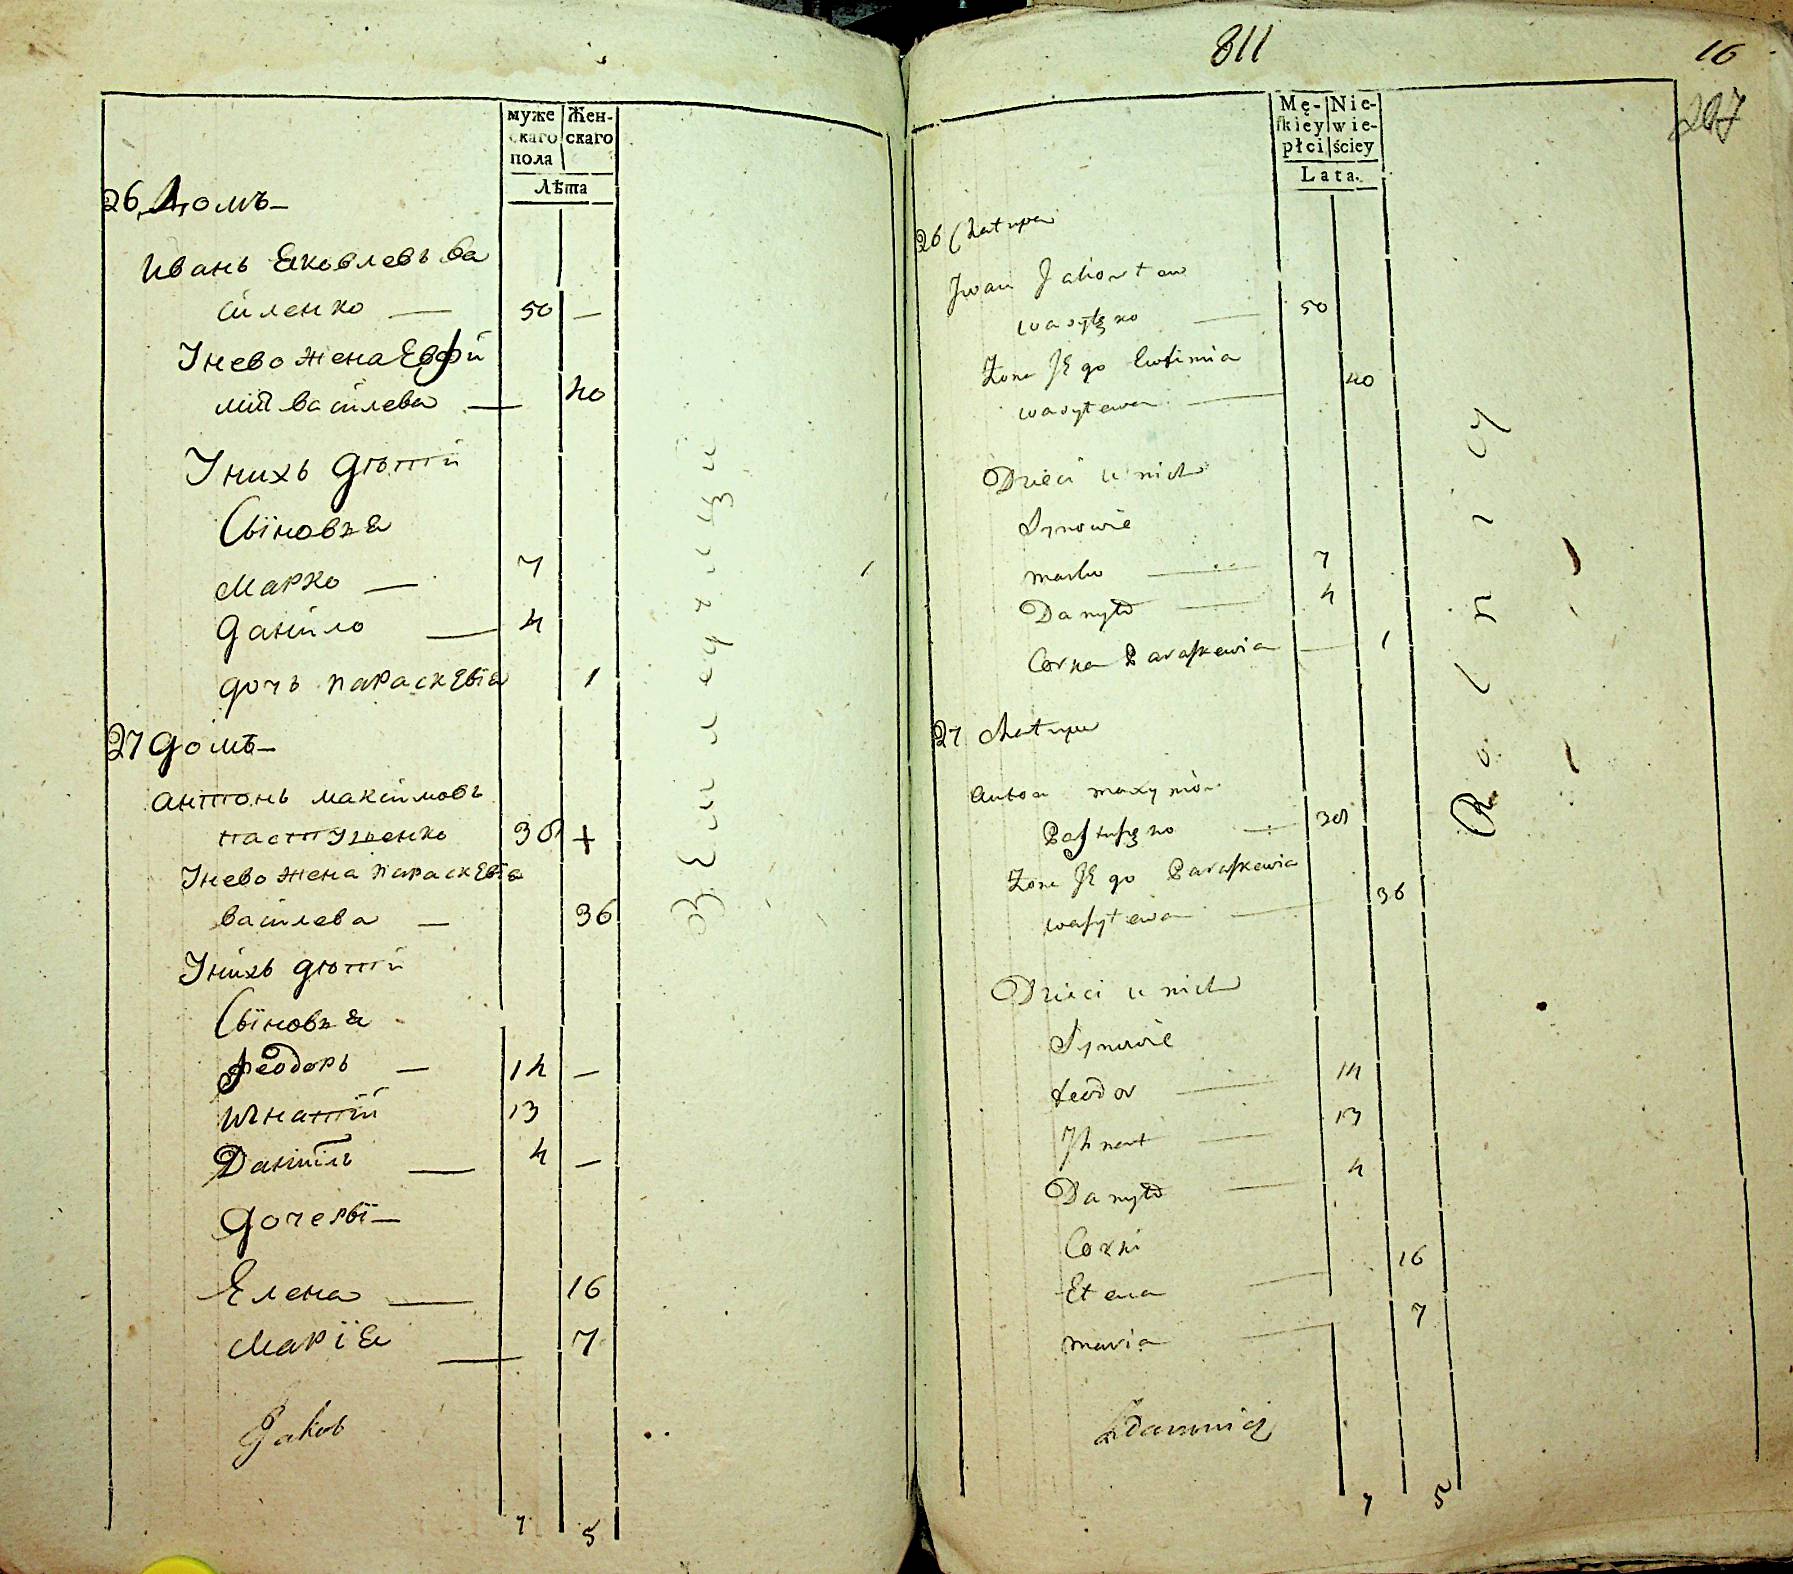 муже|Жен-
скаго|скаго
пола
Лѣта
26 Домъ
Иванъ Яковлевъ Ва
силенко — 50 —
У нево жена Евфи
мія Василева — 40
У нихъ дѣти
Сыновья
Марко — 7
Даніило — 4
дочь Параскевіа 1
27 Домъ
Антонъ Максимовъ
Пастушенко 38 +
У нево жена Параскевіа
Василева — 36
У нихъ дѣти
Сыновья
Феодоръ — 14 —
Игнатій 13
Даніилъ — 4 —
Дочеры —
Елена — 16
Маріа — 7
Jakob
7 5
811
16
207
Mę-|Nie-
ſkiey|wie-
płci|ściey
Lata.
26 Chatupa
Jwan
wasylęko — 50
Żona JEgo Ewfimia 40
wasylewa —
Dzieci u nich
Synowie
marko — 7
Danyło — 4
Corka Paraſkewia — 1
27 chatupa
Anton maxymów
Paſtuſzęko — 38
Żona JEgo Paraſkewia
waſylewa — 36
Dzieci u nich
Synowie
feodor — 14
Jhnat — 13
Danyło — 4
Corki
Elena — 16
maria — 7
7 5
Rolnicy